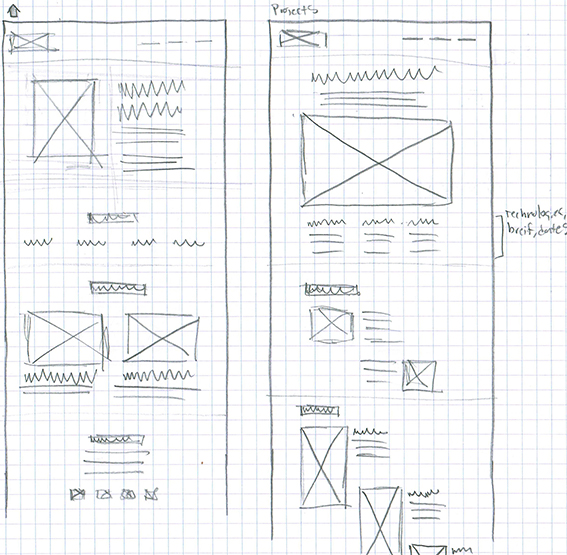 Projects
technologies,
breif, dates